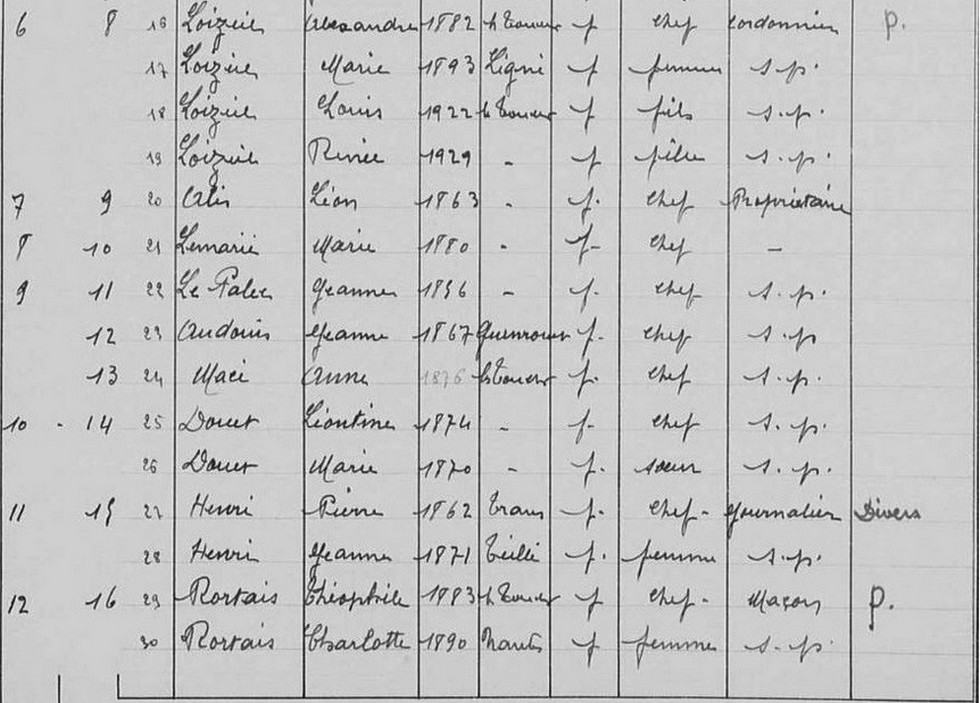 6 8 16 Loizeil Alexandre 1882 f chef cordonnier P.
17 Loizeil Marie 1893 Ligné f femme s.p.
18 Loizeil Louis 1922 f fils s.p.
19 Loizeil Renée 1929 - f fille s.p.
7 9 20 Alis Léon 1863 - f. chef Propriétaire
8 10 21 Lemarié Marie 1880 - f- chef -
9 11 22 Jeanne 1856 - f. chef s.p.
12 23 Audouin Jeanne 1867 f. chef s.p
13 24 Macé Anne 1876 f. chef s.p.
10 - 14 25 Douet Léontine 1874 - f- chef s.p.
26 Douet Marie 1870 - f. sœur s.p.
11 15 27 Henri Pierre 1862 Trans f. chef- Journalier Divers
28 Henri Jeanne 1871 Teillé f. femme s.p.
12 16 29 Rortais Théophile 1883 f chef- Maçon P.
30 Rortais Charlotte 1890 Nantes f femme s.p.